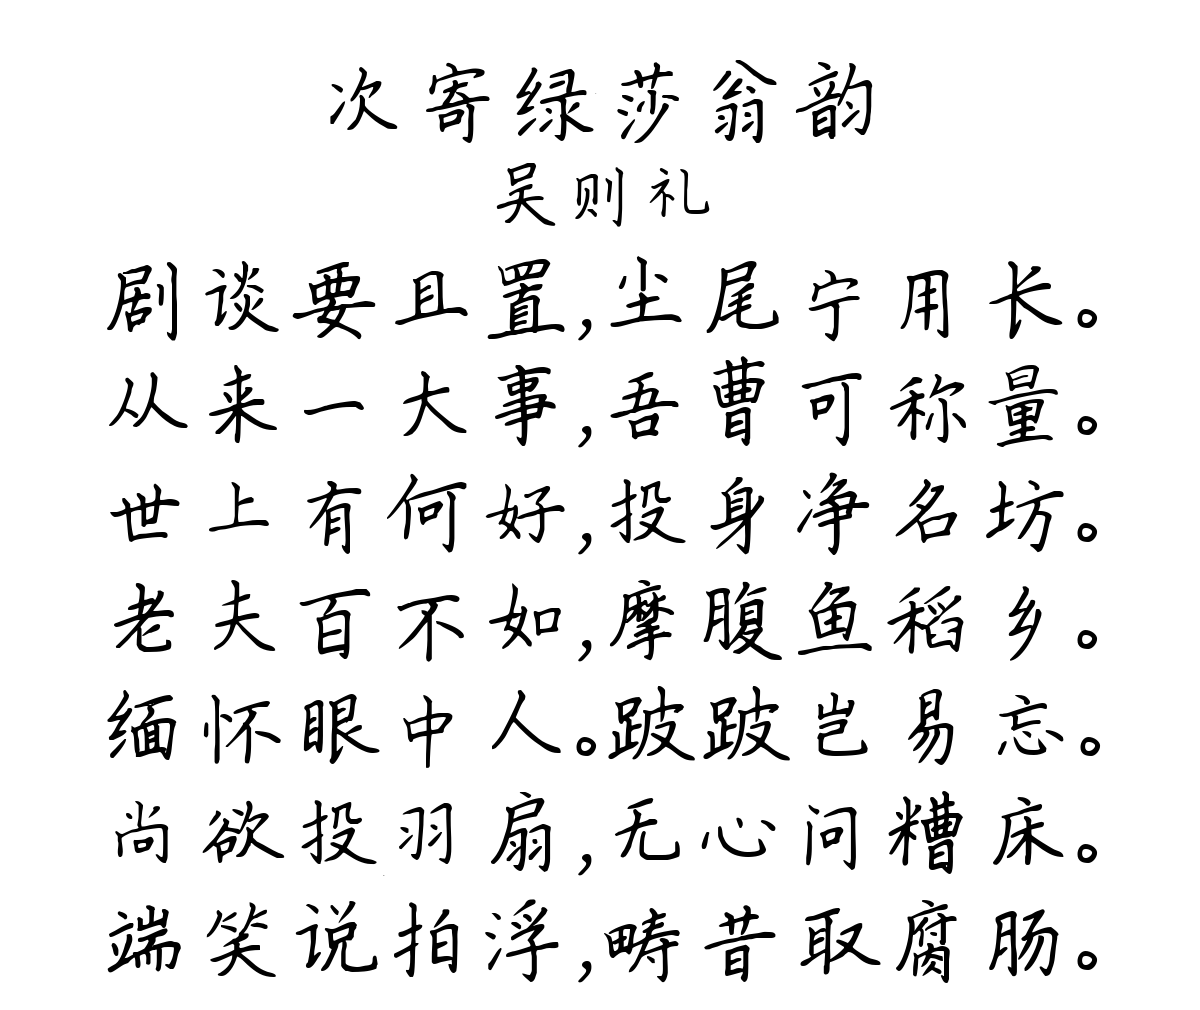 次寄绿莎翁韵
吴则礼
剧谈要且置,尘尾宁用长。
从来一大事,吾曹可称量。
世上有何好,投身净名坊。
老夫百不如,摩腹鱼稻乡。
缅怀眼中人。跛跛岂易忘。
尚欲投羽扇,无心问糟床。
端笑说拍浮,畴昔取腐肠。